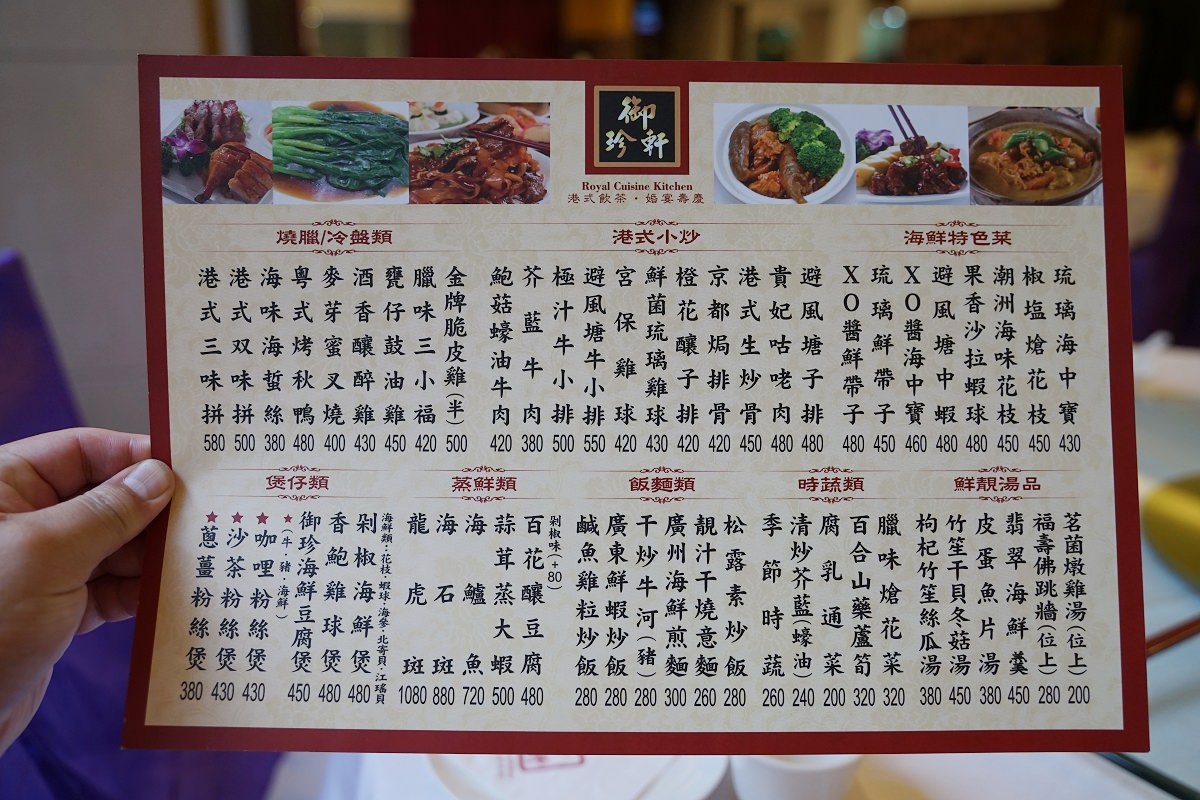 御珍軒
Royal Cuisine Kitchen
港式飲茶・婚宴壽慶
海鮮特色菜
琉璃海中寶 430
椒塩熗花枝 450
潮洲海味花枝 450
果香沙拉蝦球 480
避風塘中蝦 480
XO醬海中寶 460
琉璃鮮帶子 450
XO醬鮮帶子 480
港式小炒
避風塘子排 480
貴妃咕咾肉 480
港式生炒骨 450
京都焗排骨 420
橙花釀子排 420
鮮菌琉璃雞球 430
宮保雞球 420
避風塘牛小排 550
極汁牛小排 500
芥藍牛肉 380
鮑菇蠔油牛肉 420
燒臘/冷盤類
金牌脆皮雞(半) 500
臘味三小福 420
甕仔鼓油雞 450
酒香釀醉雞 430
麥芽蜜叉燒 400
粵式烤秋鴨 480
海味海蜇絲 380
港式双味拼 500
港式三味拼 580
鮮靚湯品
茗菌燉雞湯(位上) 200
福壽佛跳牆(位上) 280
翡翠海鮮羹 450
皮蛋魚片湯 380
竹笙干貝冬菇湯 450
枸杞竹笙絲瓜湯 380
時蔬類
臘味熗花菜 320
百合山藥蘆筍 320
腐乳通菜 200
清炒芥藍(蠔油) 240
季節時蔬 260
飯麵類
松露素炒飯 280
靚汁干燒意麵 260
廣州海鮮煎麵 300
干炒牛河(豬) 280
廣東鮮蝦炒飯 280
鹹魚雞粒炒飯 280
蒸鮮類
剁椒味(+80)
百花釀豆腐 480
蒜茸蒸大蝦 500
海鱸魚 720
海石斑 880
龍虎斑 1080
煲仔類
海鮮類:花枝・蝦球・海參・北寄貝・江瑤貝
剁椒海鮮煲 480
香鮑雞球煲 480
御珍海鮮豆腐煲 450
★(牛・豬・海鮮)
★咖哩粉絲煲 430
★沙茶粉絲煲 430
★蔥薑粉絲煲 380